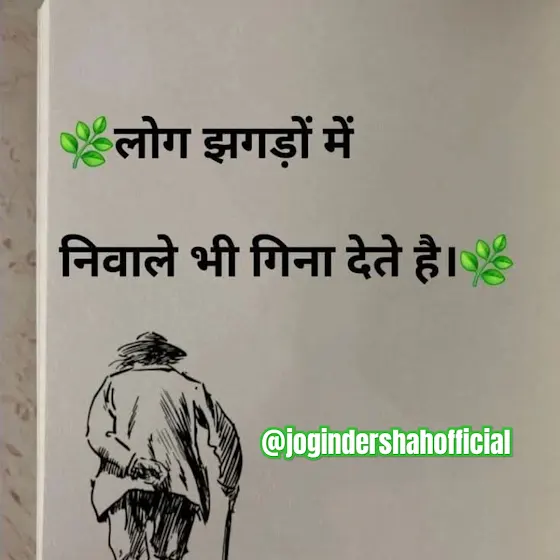 🌿लोग झगड़ों में
निवाले भी गिना देते है।🌿
@jogindershahofficial